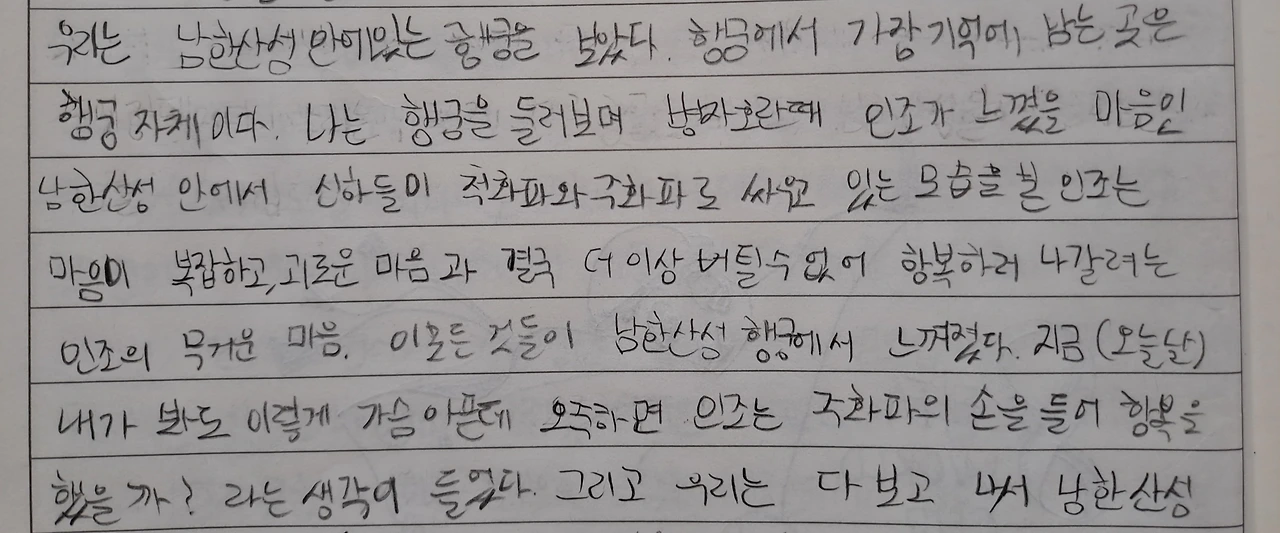 우리는 남한산성 안에있는 행궁을 보았다. 행궁에서 가장 기억에 남는 곳은
행궁 자체이다. 나는 행궁을 둘러보며 병자호란때 인조가 느꼈을 마음인
남한산성 안에서 신하들이 척화파와 주화파로 싸우고 있는 모습을 본 인조는
마음이 복잡하고, 괴로운 마음과 결국 더이상 버틸수 없어 항복하러 나갈려는
인조의 무거운 마음. 이모든 것들이 남한산성 행궁에서 느껴졌다. 지금(오늘날)
내가 봐도 이렇게 가슴아픈데 오죽하면 인조는 주화파의 손을 들어 항복을
했을까? 라는 생각이 들었다. 그리고 우리는 다보고 나서 남한산성